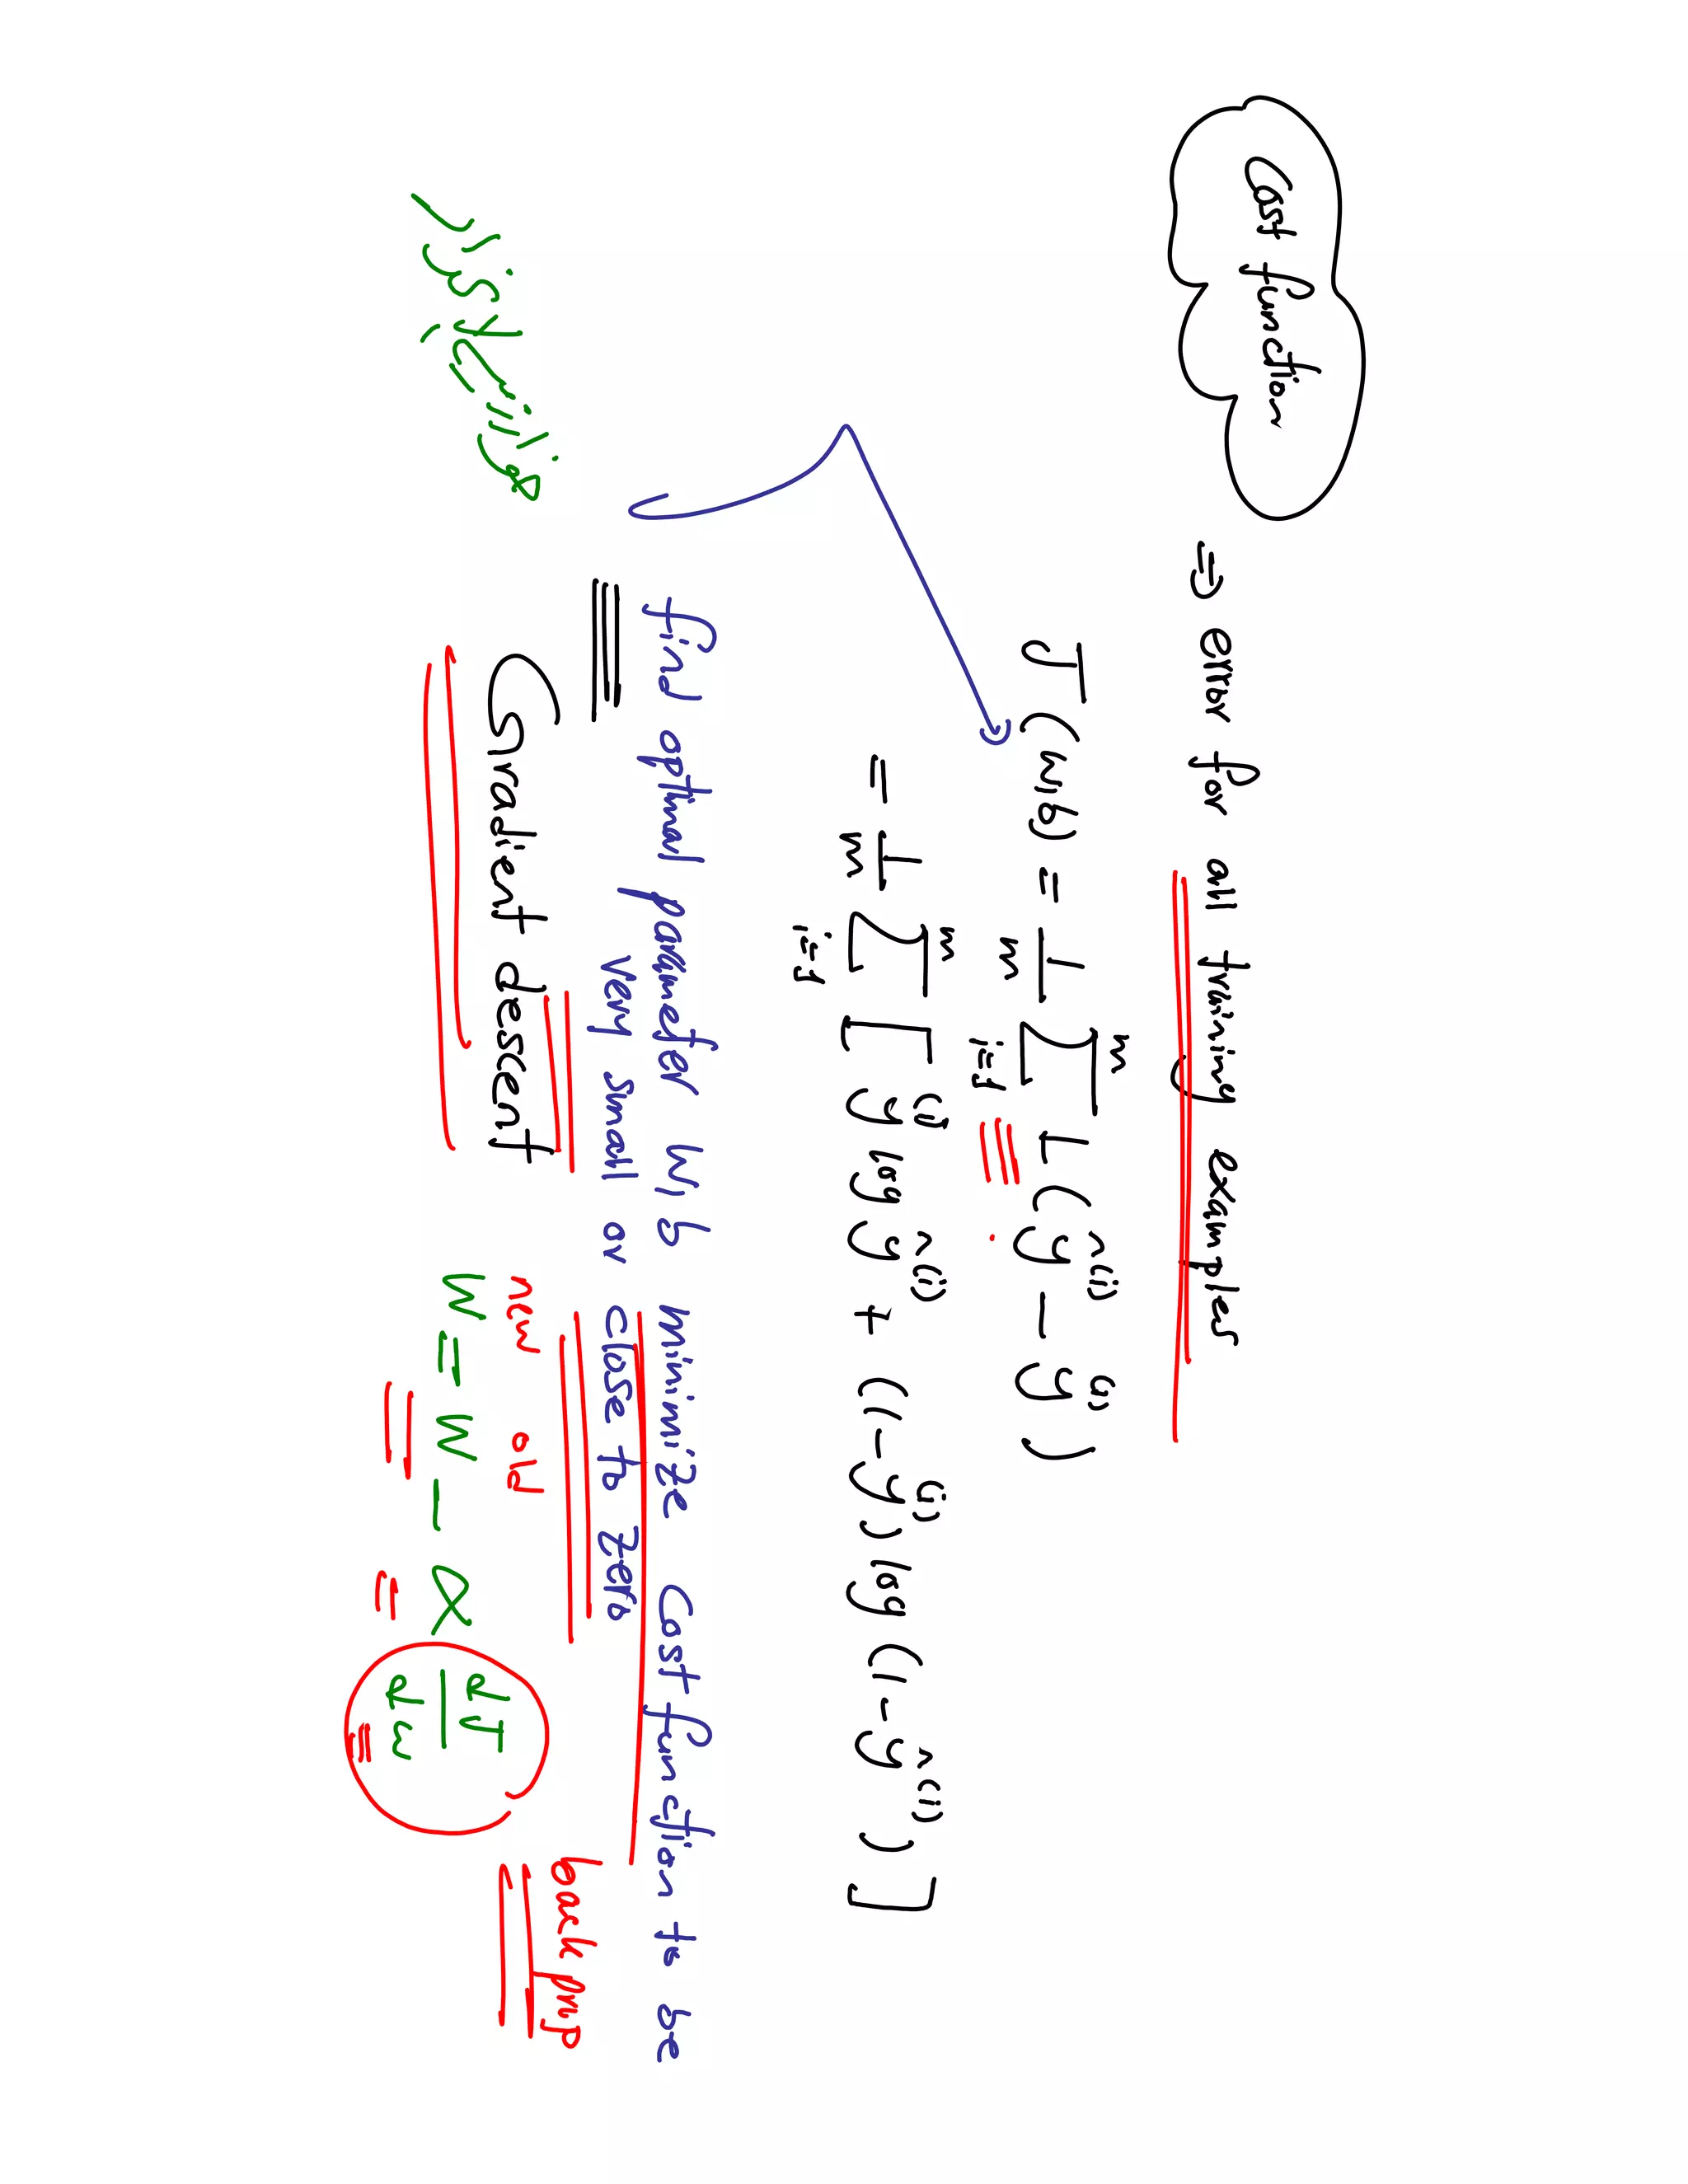 Cost function ⇒ error for all training examples
J(w,b) = 1/m Σ_{i=1}^{m} L(ŷ^(i) − y^(i))
= 1/m Σ_{i=1}^{m} [ y^(i) log ŷ^(i) + (1−y^(i)) log (1−ŷ^(i)) ]
find optimal parameter w,b minimize Cost function to be
very small or close to zero
Gradient descent
back prop
new old
W = W − α dJ/dw